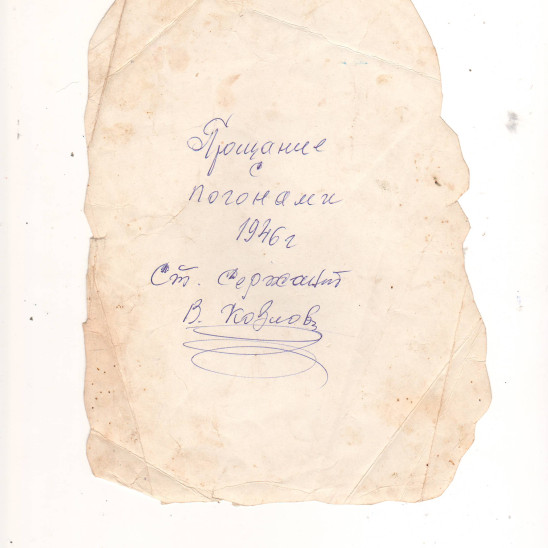 Прощание
с
погонами
1946 г
Ст. сержант
В. Козлов